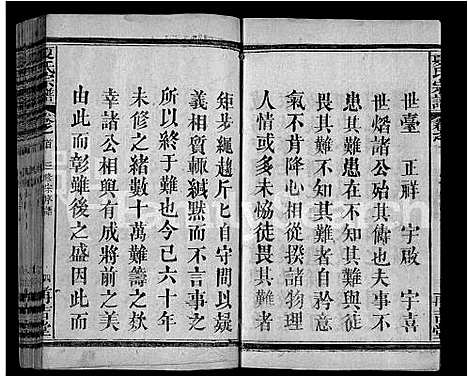 世臺 正祥 宇啟 宇喜
世熠諸公殆其儔也夫事不
患其難患在不知其難又不
患其難而不知難者自矜意
氣不肯降心相從揆諸物理
人情或多未恊徒畏其難者
矩步繩趨斤匕自守間以疑
義相質輒緘默而不言事之
所以終于難也今己六十年
未修之緒數十萬難籌之欵
幸諸公相與有成將前之美
由此而彰雖後之盛因此而
夏氏宗譜
卷之首
三修宗譜序
四
夏氏宗譜